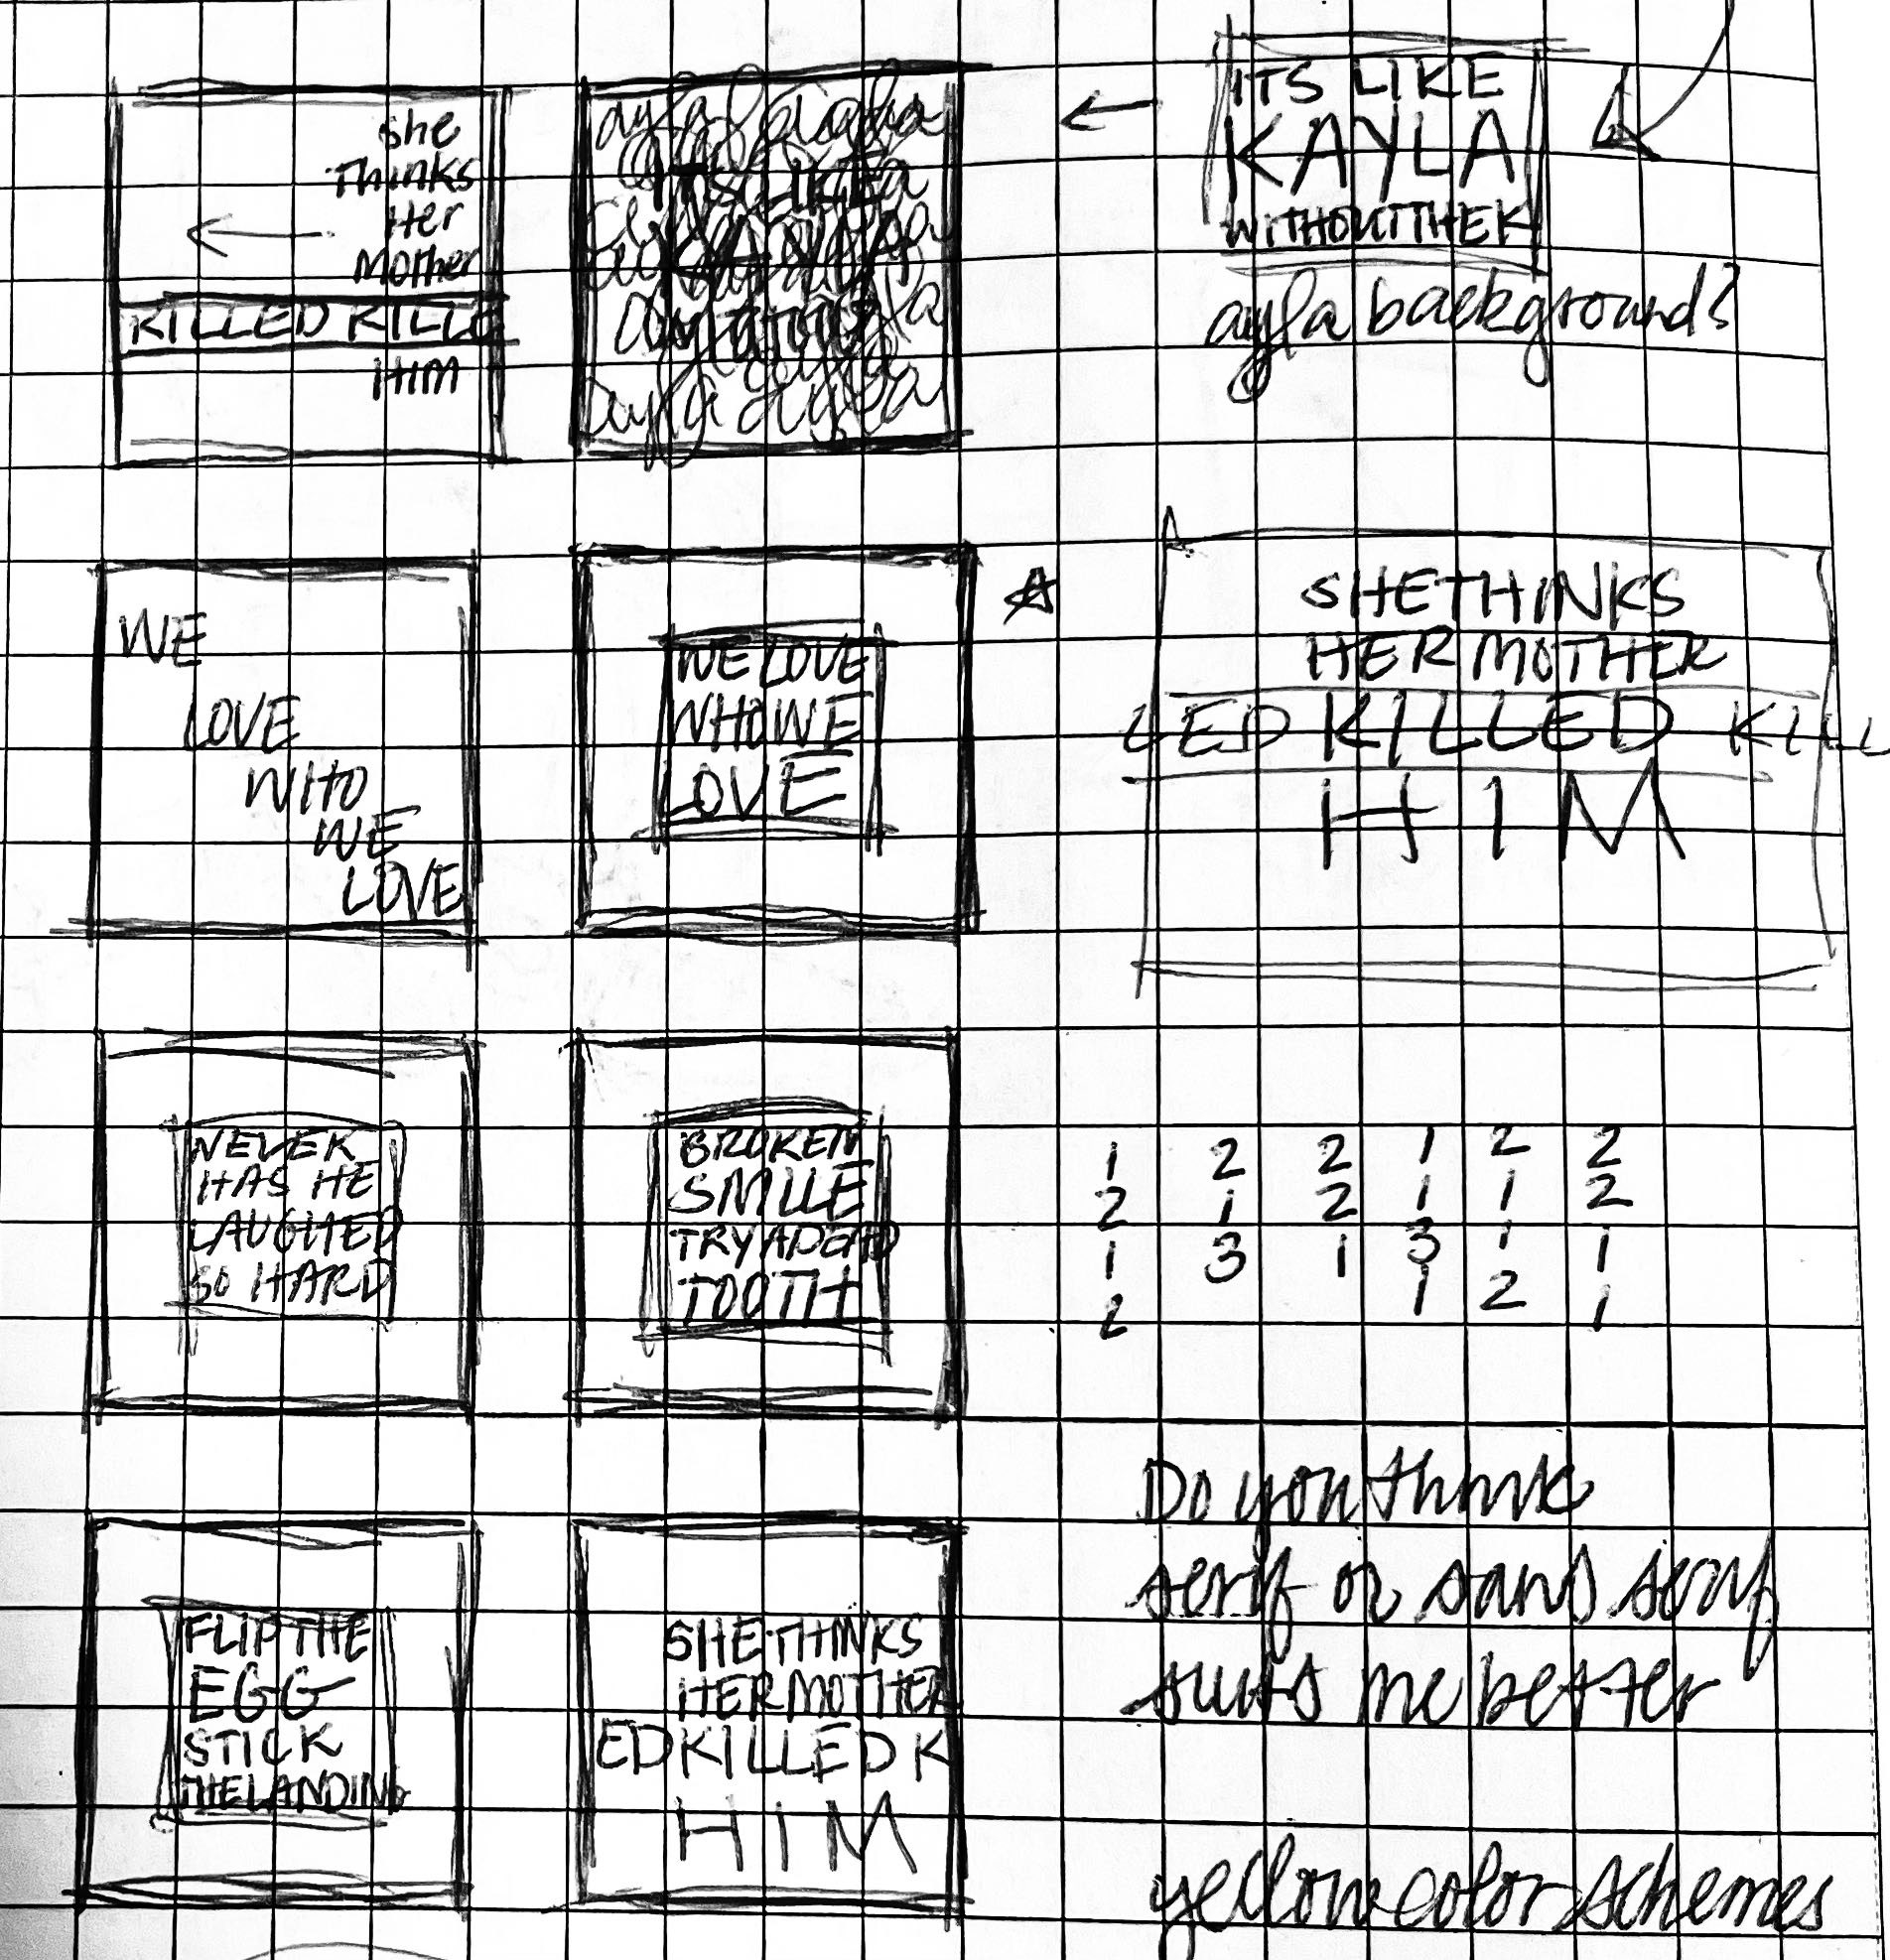 she
Thinks
Her
Mother
KILLED KILLE
HIM
ayla ayla
ITS LIKE
KAYLA
ayla ayla
ITS LIKE
KAYLA
WITHOUTTHEK
ayla background?
WE
LOVE
WHO
WE
LOVE
WE LOVE
WHOWE
LOVE
SHETHINKS
HER MOTHER
LED KILLED KILL
HIM
NEVER
HAS HE
LAUGHED
SO HARD
BROKEN
SMILE
TRYADEAD
TOOTH
1 2 2 1 2 2
2 1 2 1 1 2
1 3 1 3 1 1
2 1 2 1
FLIPTHE
EGG
STICK
THELANDING
SHETHINKS
HERMOTHER
EDKILLEDK
HIM
Do you think
serif or sans serif
suits me better
yellow color schemes